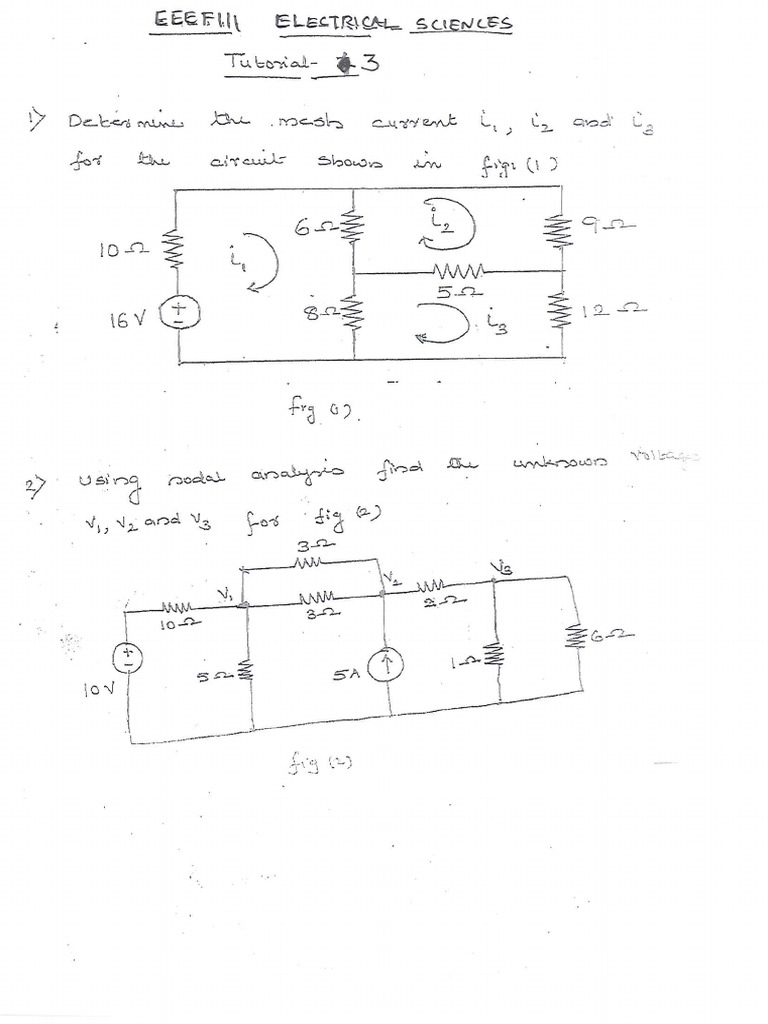 EEEF111 ELECTRICAL SCIENCES
Tutorial- 3
1) Determine the mesh current i₁, i₂ and i₃
for the circuit shown in fig: (1)
10Ω
16V
i₁
6Ω
i₂
9Ω
5Ω
8Ω
i₃
12Ω
fig (1).
2) Using nodal analysis find the unknown voltage
V₁, V₂ and V₃ for fig (2)
3Ω
V₁
V₂
V₃
10Ω
3Ω
2Ω
10V
5Ω
5A
1Ω
6Ω
fig (2)